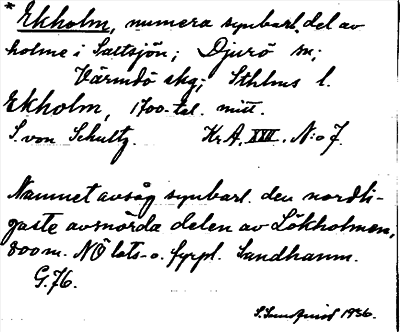 * Ekholm, numera synbarl. del av
holme i Saltsjön; Djurö sn;
Värmdö skg; Sthlms l.
Ekholm, 1700-tal. mitt.
S. von Schultz. Kr.A. XVII. N:o 7.
Namnet avsåg synbarl. den nordli-
gaste avsnörda delen av Lökholmen,
800 m. NÖ lots- o. fyrpl. Sandhamn.
G. 76.
1936.